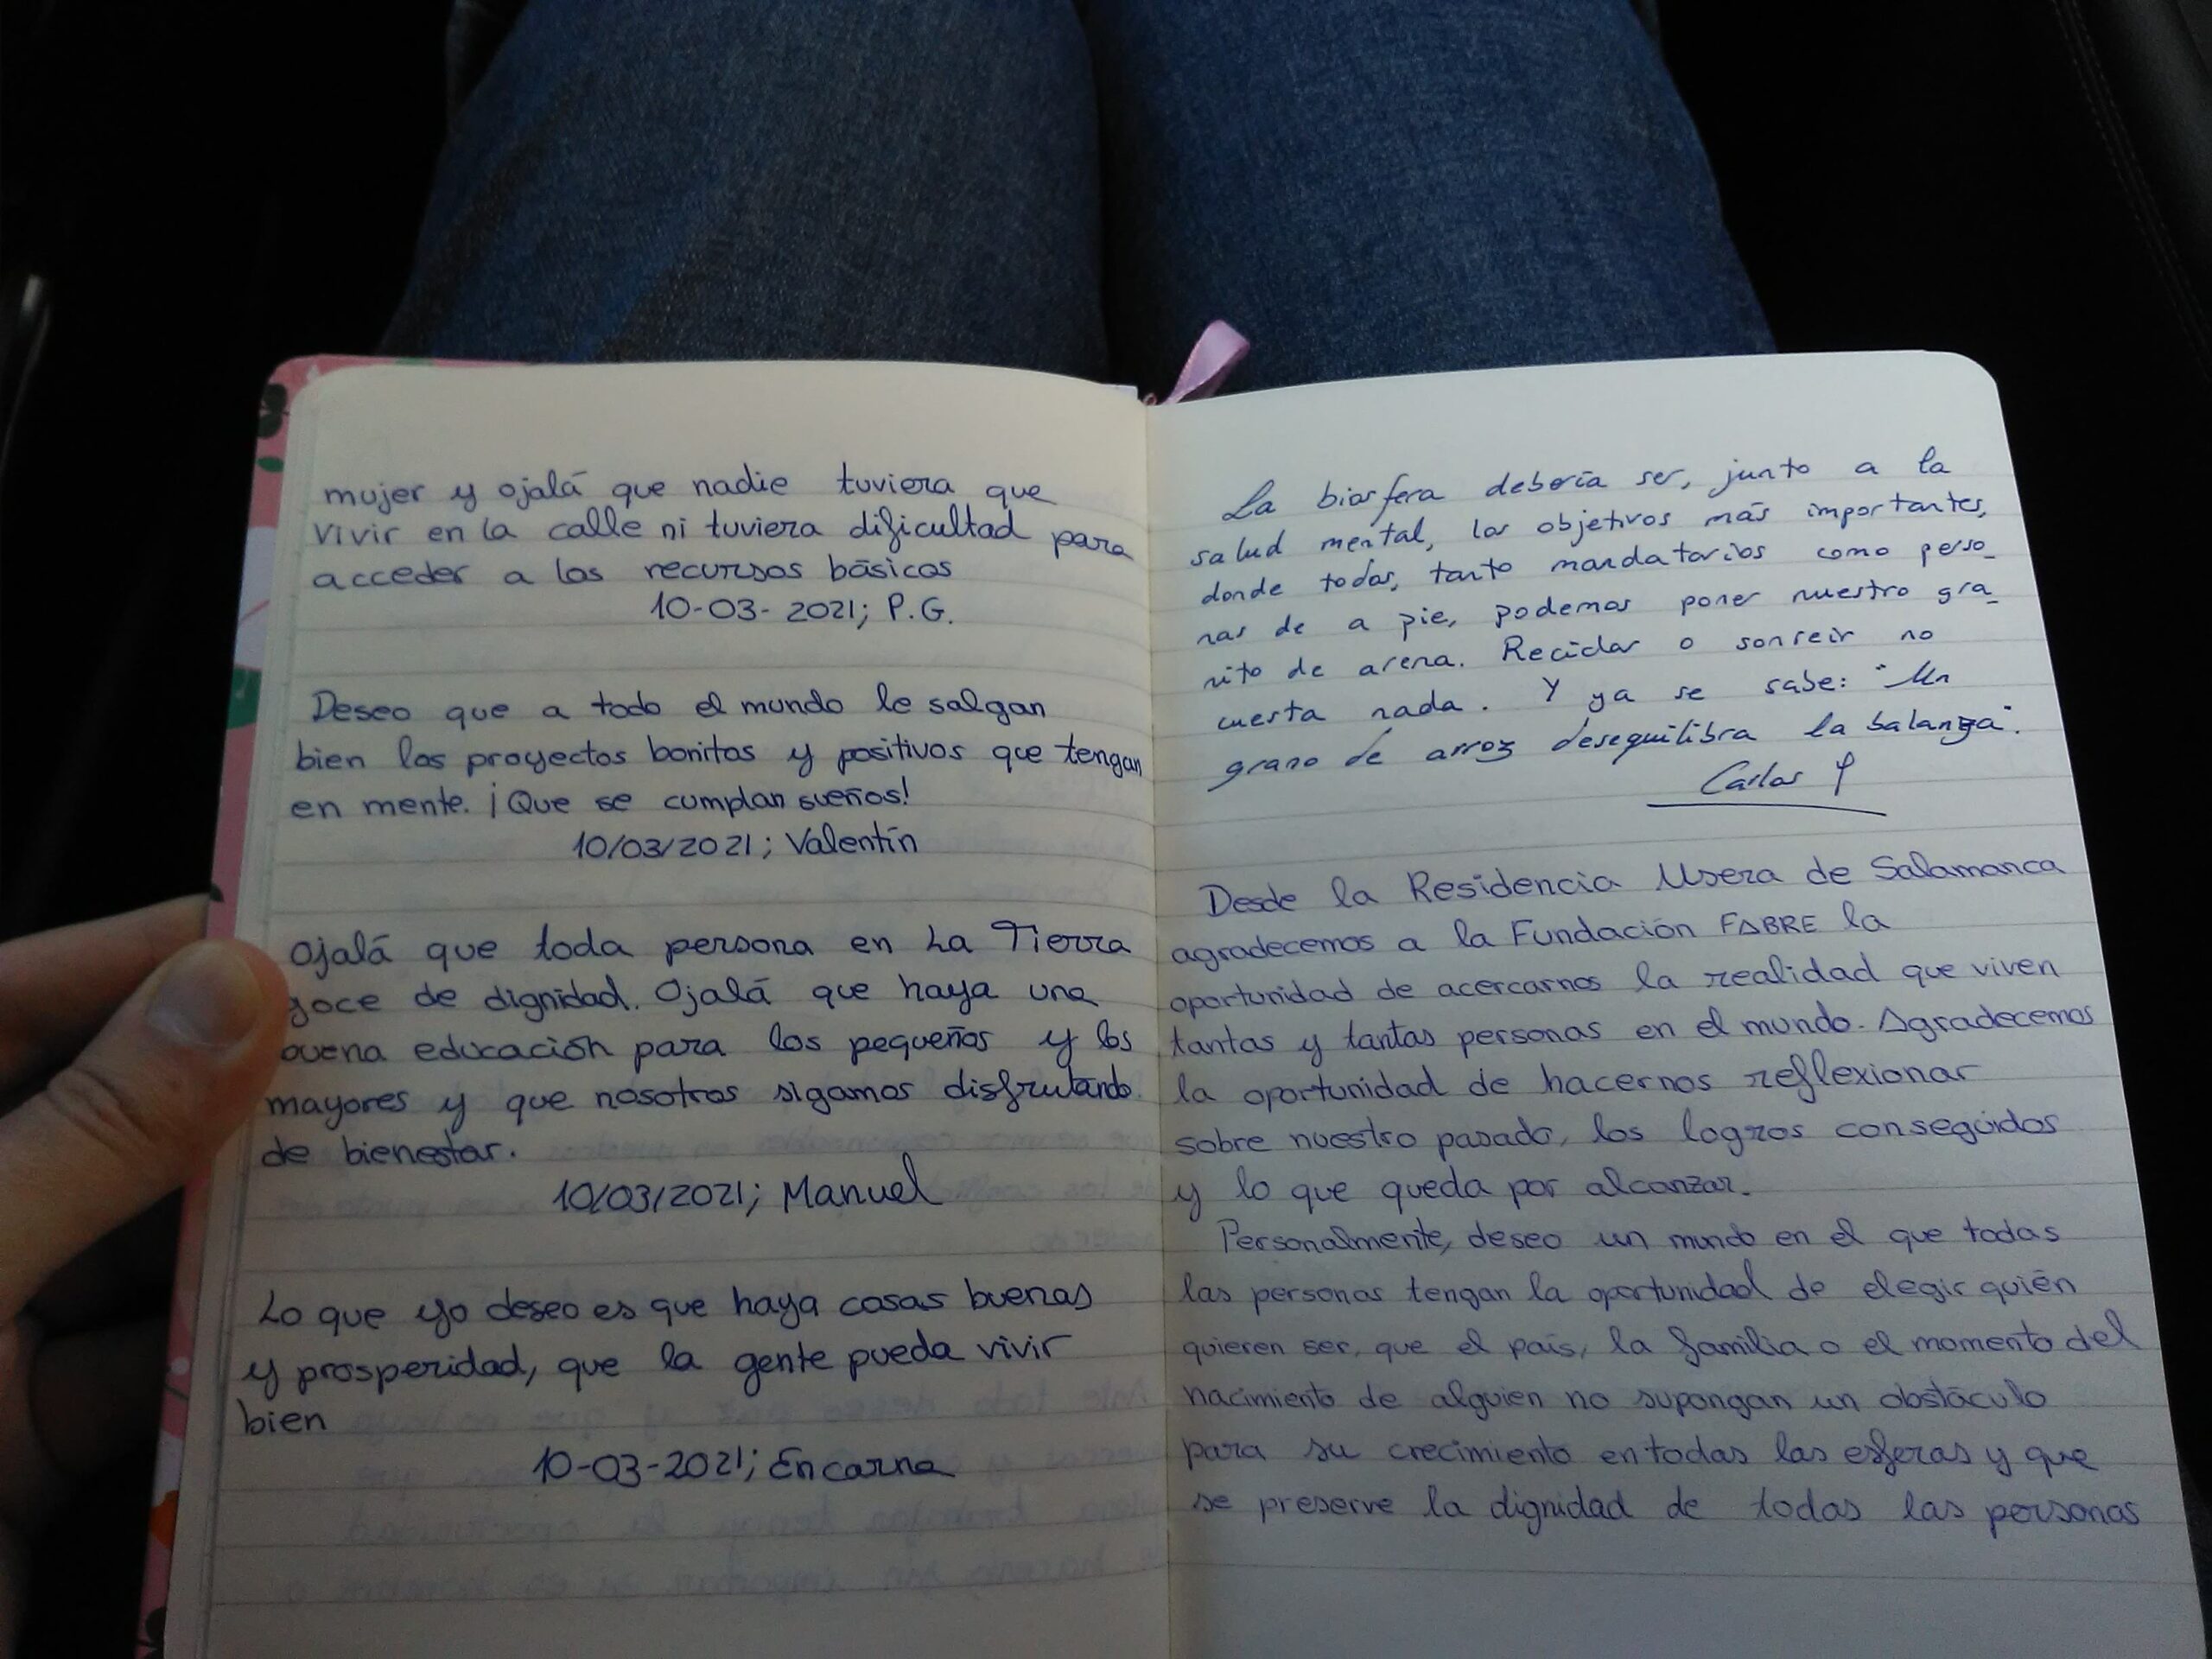 mujer y ojalá que nadie tuviera que
vivir en la calle ni tuviera dificultad para
acceder a los recursos básicos
10-03-2021; P.G.
Deseo que a todo el mundo le salgan
bien los proyectos bonitos y positivos que tengan
en mente. ¡Que se cumplan sueños!
10/03/2021; Valentín
Ojalá que toda persona en La Tierra
goce de dignidad. Ojalá que haya una
buena educación para los pequeños y los
mayores y que nosotros sigamos disfrutando
de bienestar.
10/03/2021; Manuel
Lo que yo deseo es que haya cosas buenas
y prosperidad, que la gente pueda vivir
bien
10-03-2021; Encarna
La biosfera debería ser, junto a la
salud mental, los objetivos más importantes,
donde todos, tanto mandatarios como perso-
nas de a pie, podemos poner nuestro gra-
nito de arena. Reciclar o sonreir no
cuesta nada. Y ya se sabe: "Un
grano de arroz desequilibra la balanza".
Carlos
Desde la Residencia Usera de Salamanca
agradecemos a la Fundación FABRE la
oportunidad de acercarnos la realidad que viven
tantas y tantas personas en el mundo. Agradecemos
la oportunidad de hacernos reflexionar
sobre nuestro pasado, los logros conseguidos
y lo que queda por alcanzar.
Personalmente, deseo un mundo en el que todas
las personas tengan la oportunidad de elegir quién
quieren ser, que el país, la familia o el momento del
nacimiento de alguien no supongan un obstáculo
para su crecimiento en todas las esferas y que
se preserve la dignidad de todas las personas